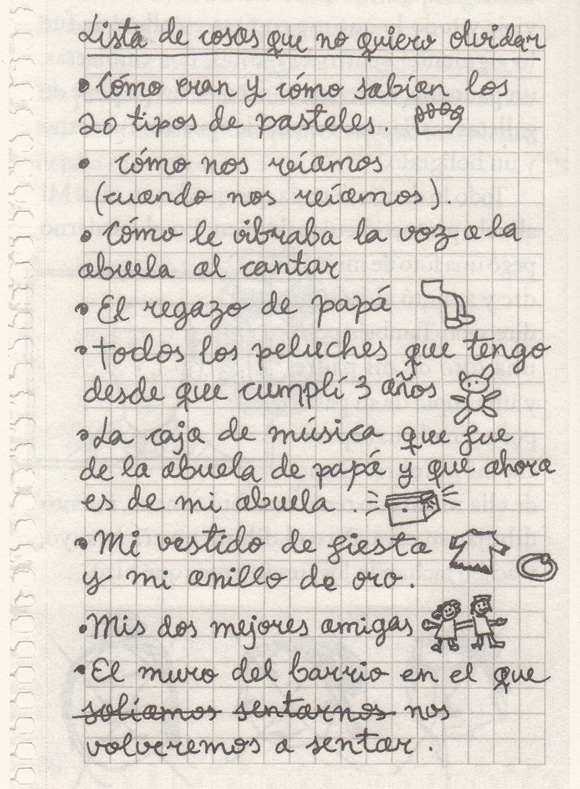 Lista de cosas que no quiero olvidar
• Cómo eran y cómo sabían los
20 tipos de pasteles.
• Cómo nos reíamos
(cuando nos reíamos).
• Cómo le vibraba la voz a la
abuela al cantar
• El regazo de papá
• Todos los peluches que tengo
desde que cumplí 3 años
• La caja de música que fue
de la abuela de papá y que ahora
es de mi abuela.
• Mi vestido de fiesta
y mi anillo de oro.
• Mis dos mejores amigas
• El muro del barrio en el que
solíamos sentarnos nos
volveremos a sentar.